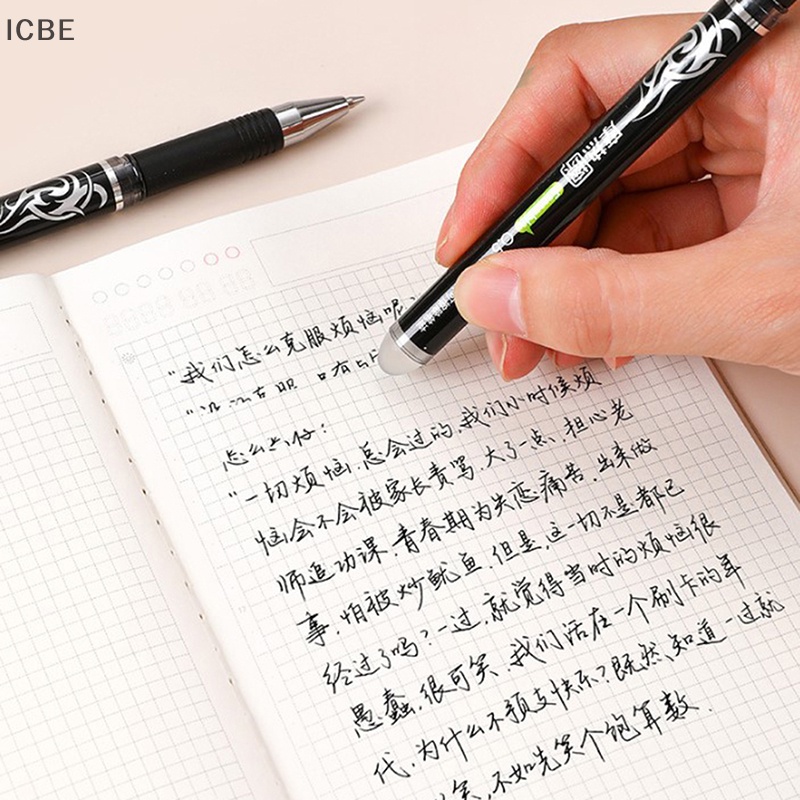 ICBE
"我们怎么克服烦恼呢
怎么
"一切烦恼,总会过的,我们小时候烦
恼会不会被家长责骂,大了一点,担心老
师追功课,青春期为失恋痛苦,出来做
事,怕被炒鱿鱼,但是,这一切不是都已
经过了吗?一过,就觉得当时的烦恼很
愚蠢,很可笑,我们活在一个刷卡的年
代,为什么不预支快乐?既然知道一过就
笑,不如先笑个饱算数.